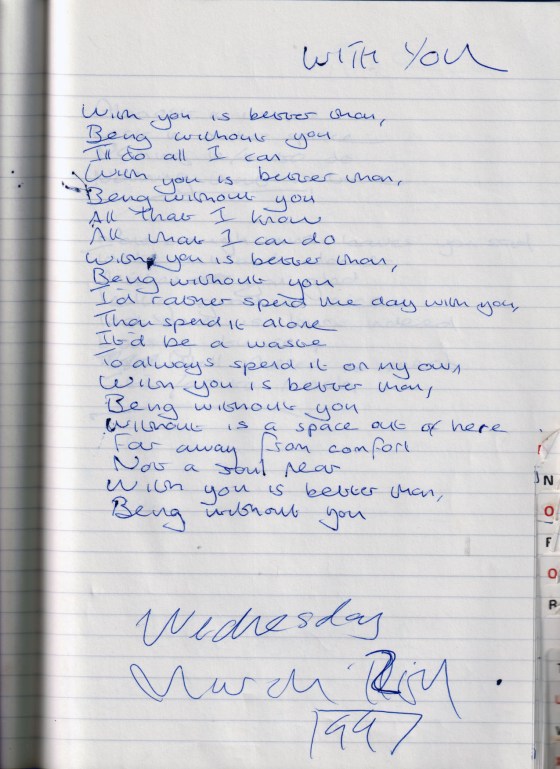 WITH YOU
With you is better than,
Being without you
I'll do all I can
With you is better than,
Being without you
All that I know
All that I can do
With you is better than,
Being without you
I'd rather spend the day with you,
Than spend it alone
It'd be a waste
To always spend it on my own
With you is better than,
Being without you
Without is a space out of here
Far away from comfort
Not a soul near
With you is better than,
Being without you
Wednesday
March
1997
N
O
F
O
R